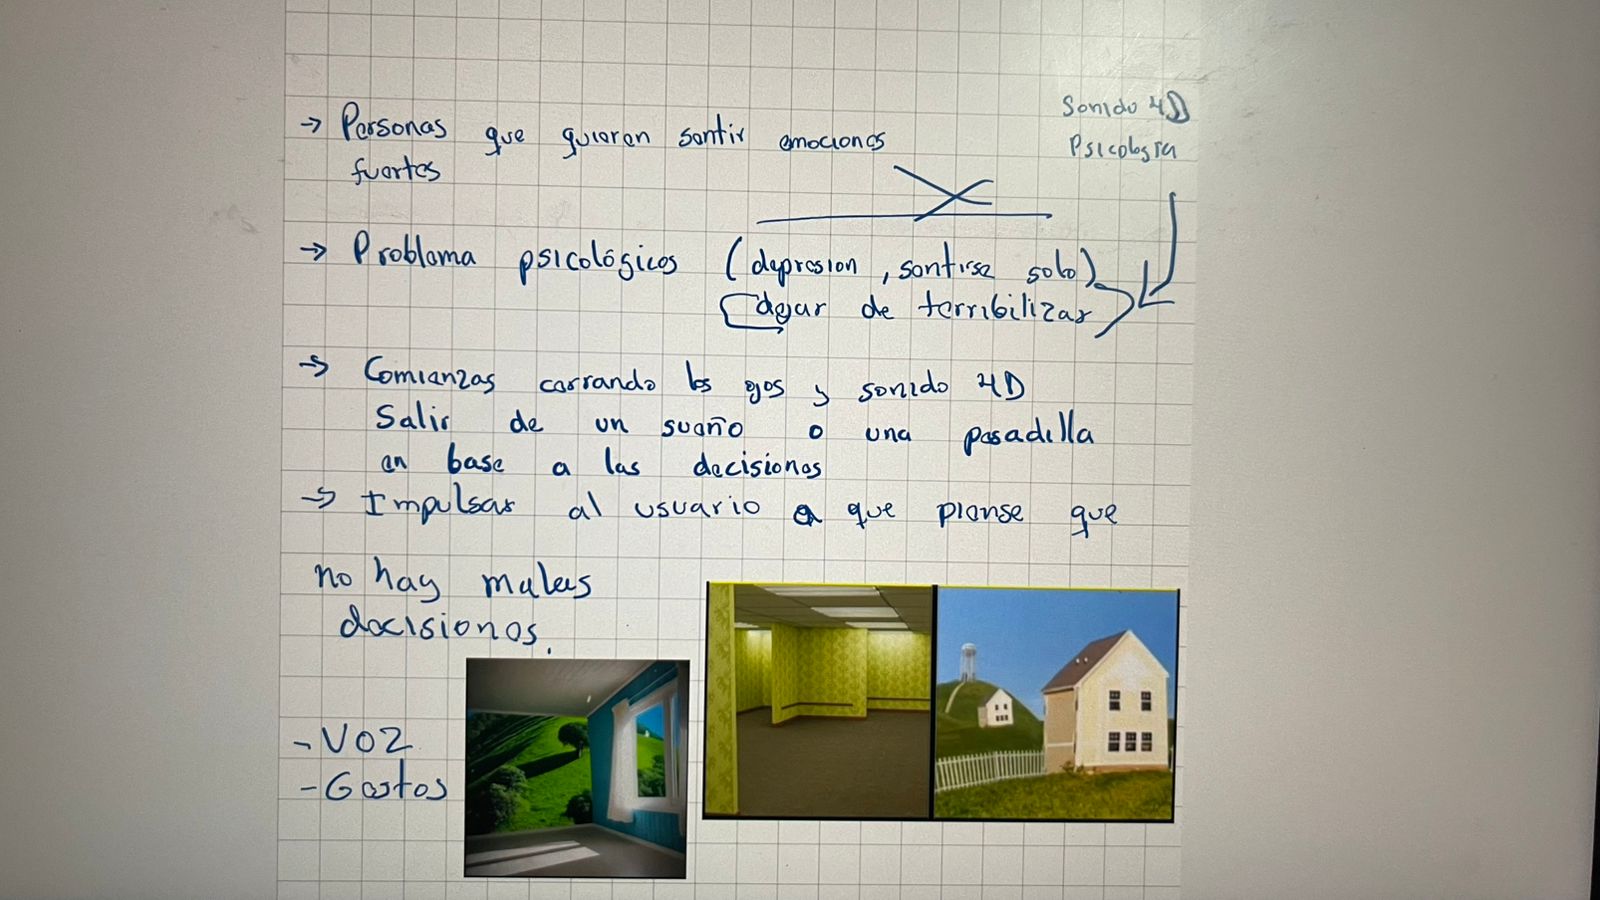 → Personas que quieren sentir emociones
fuertes
Sonido 4D
Psicología
→ Problema psicológicos (depresion, sentirse solo)
dejar de terribilizar
→ Comienzas cerrando los ojos y sonido 4D
Salir de un sueño o una pesadilla
en base a las decisiones
→ Impulsar al usuario a que piense que
no hay malas
decisiones.
- Voz
- Gestos